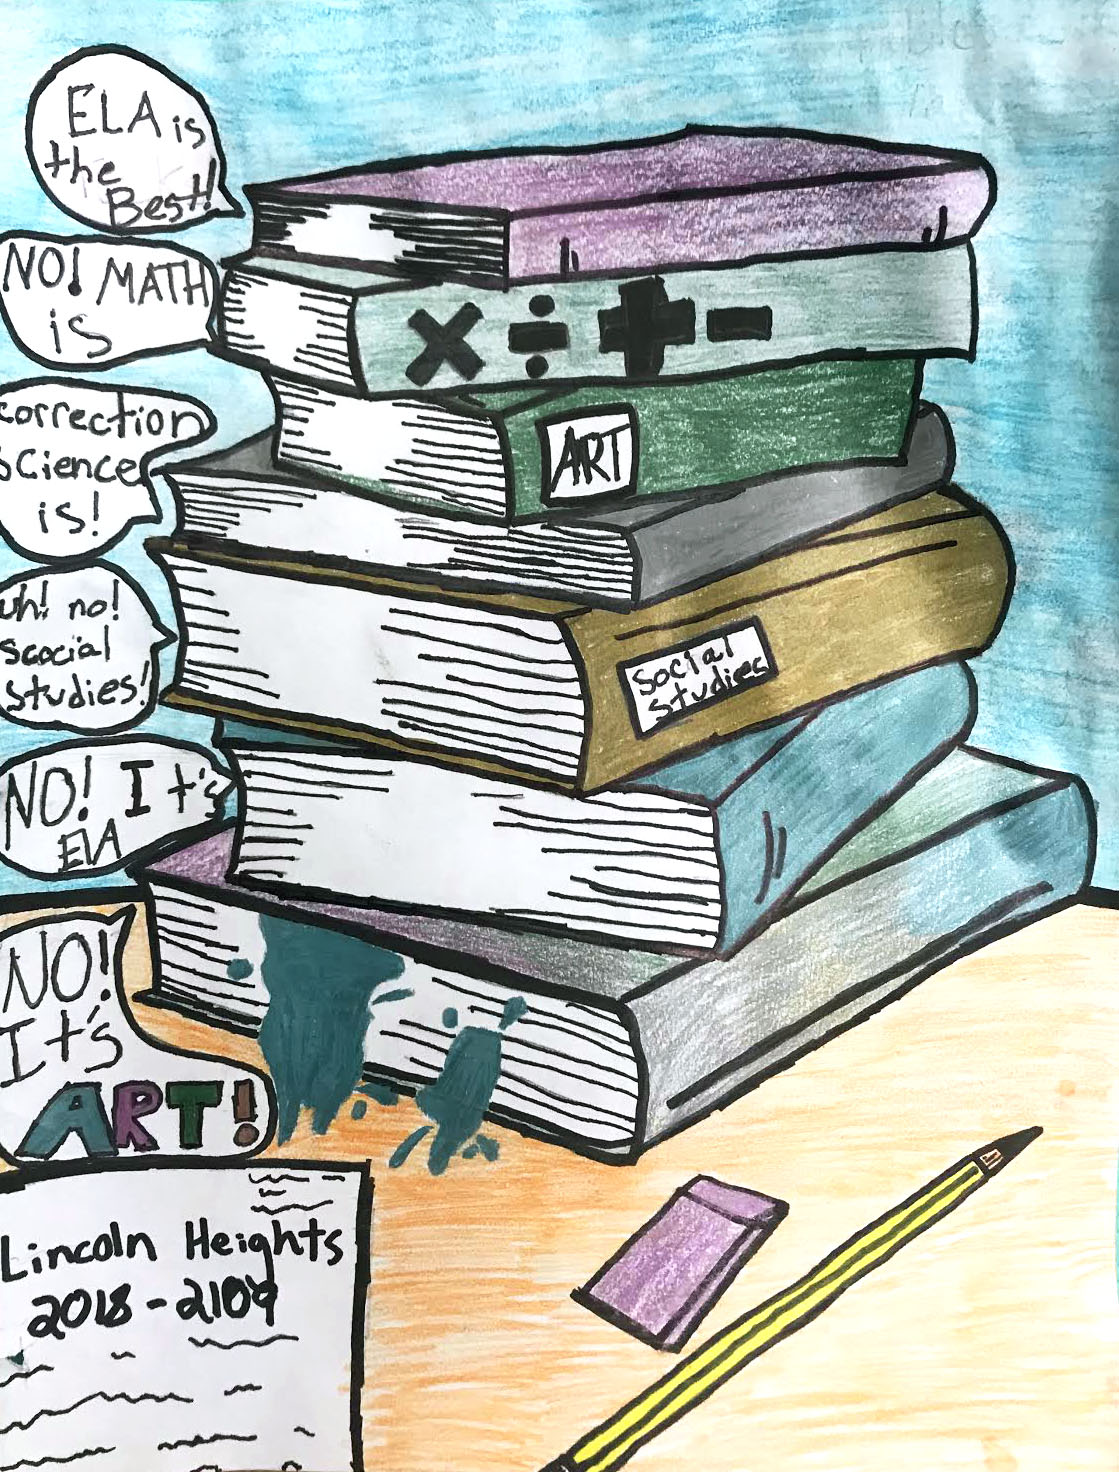 ELA is
the
Best!
NO! MATH
is
correction
science
is!
uh! no!
scocial
studies!
NO! It's
ElA
NO!
It's
ART!
ART
Social
Studies
Lincoln Heights
2018-2109